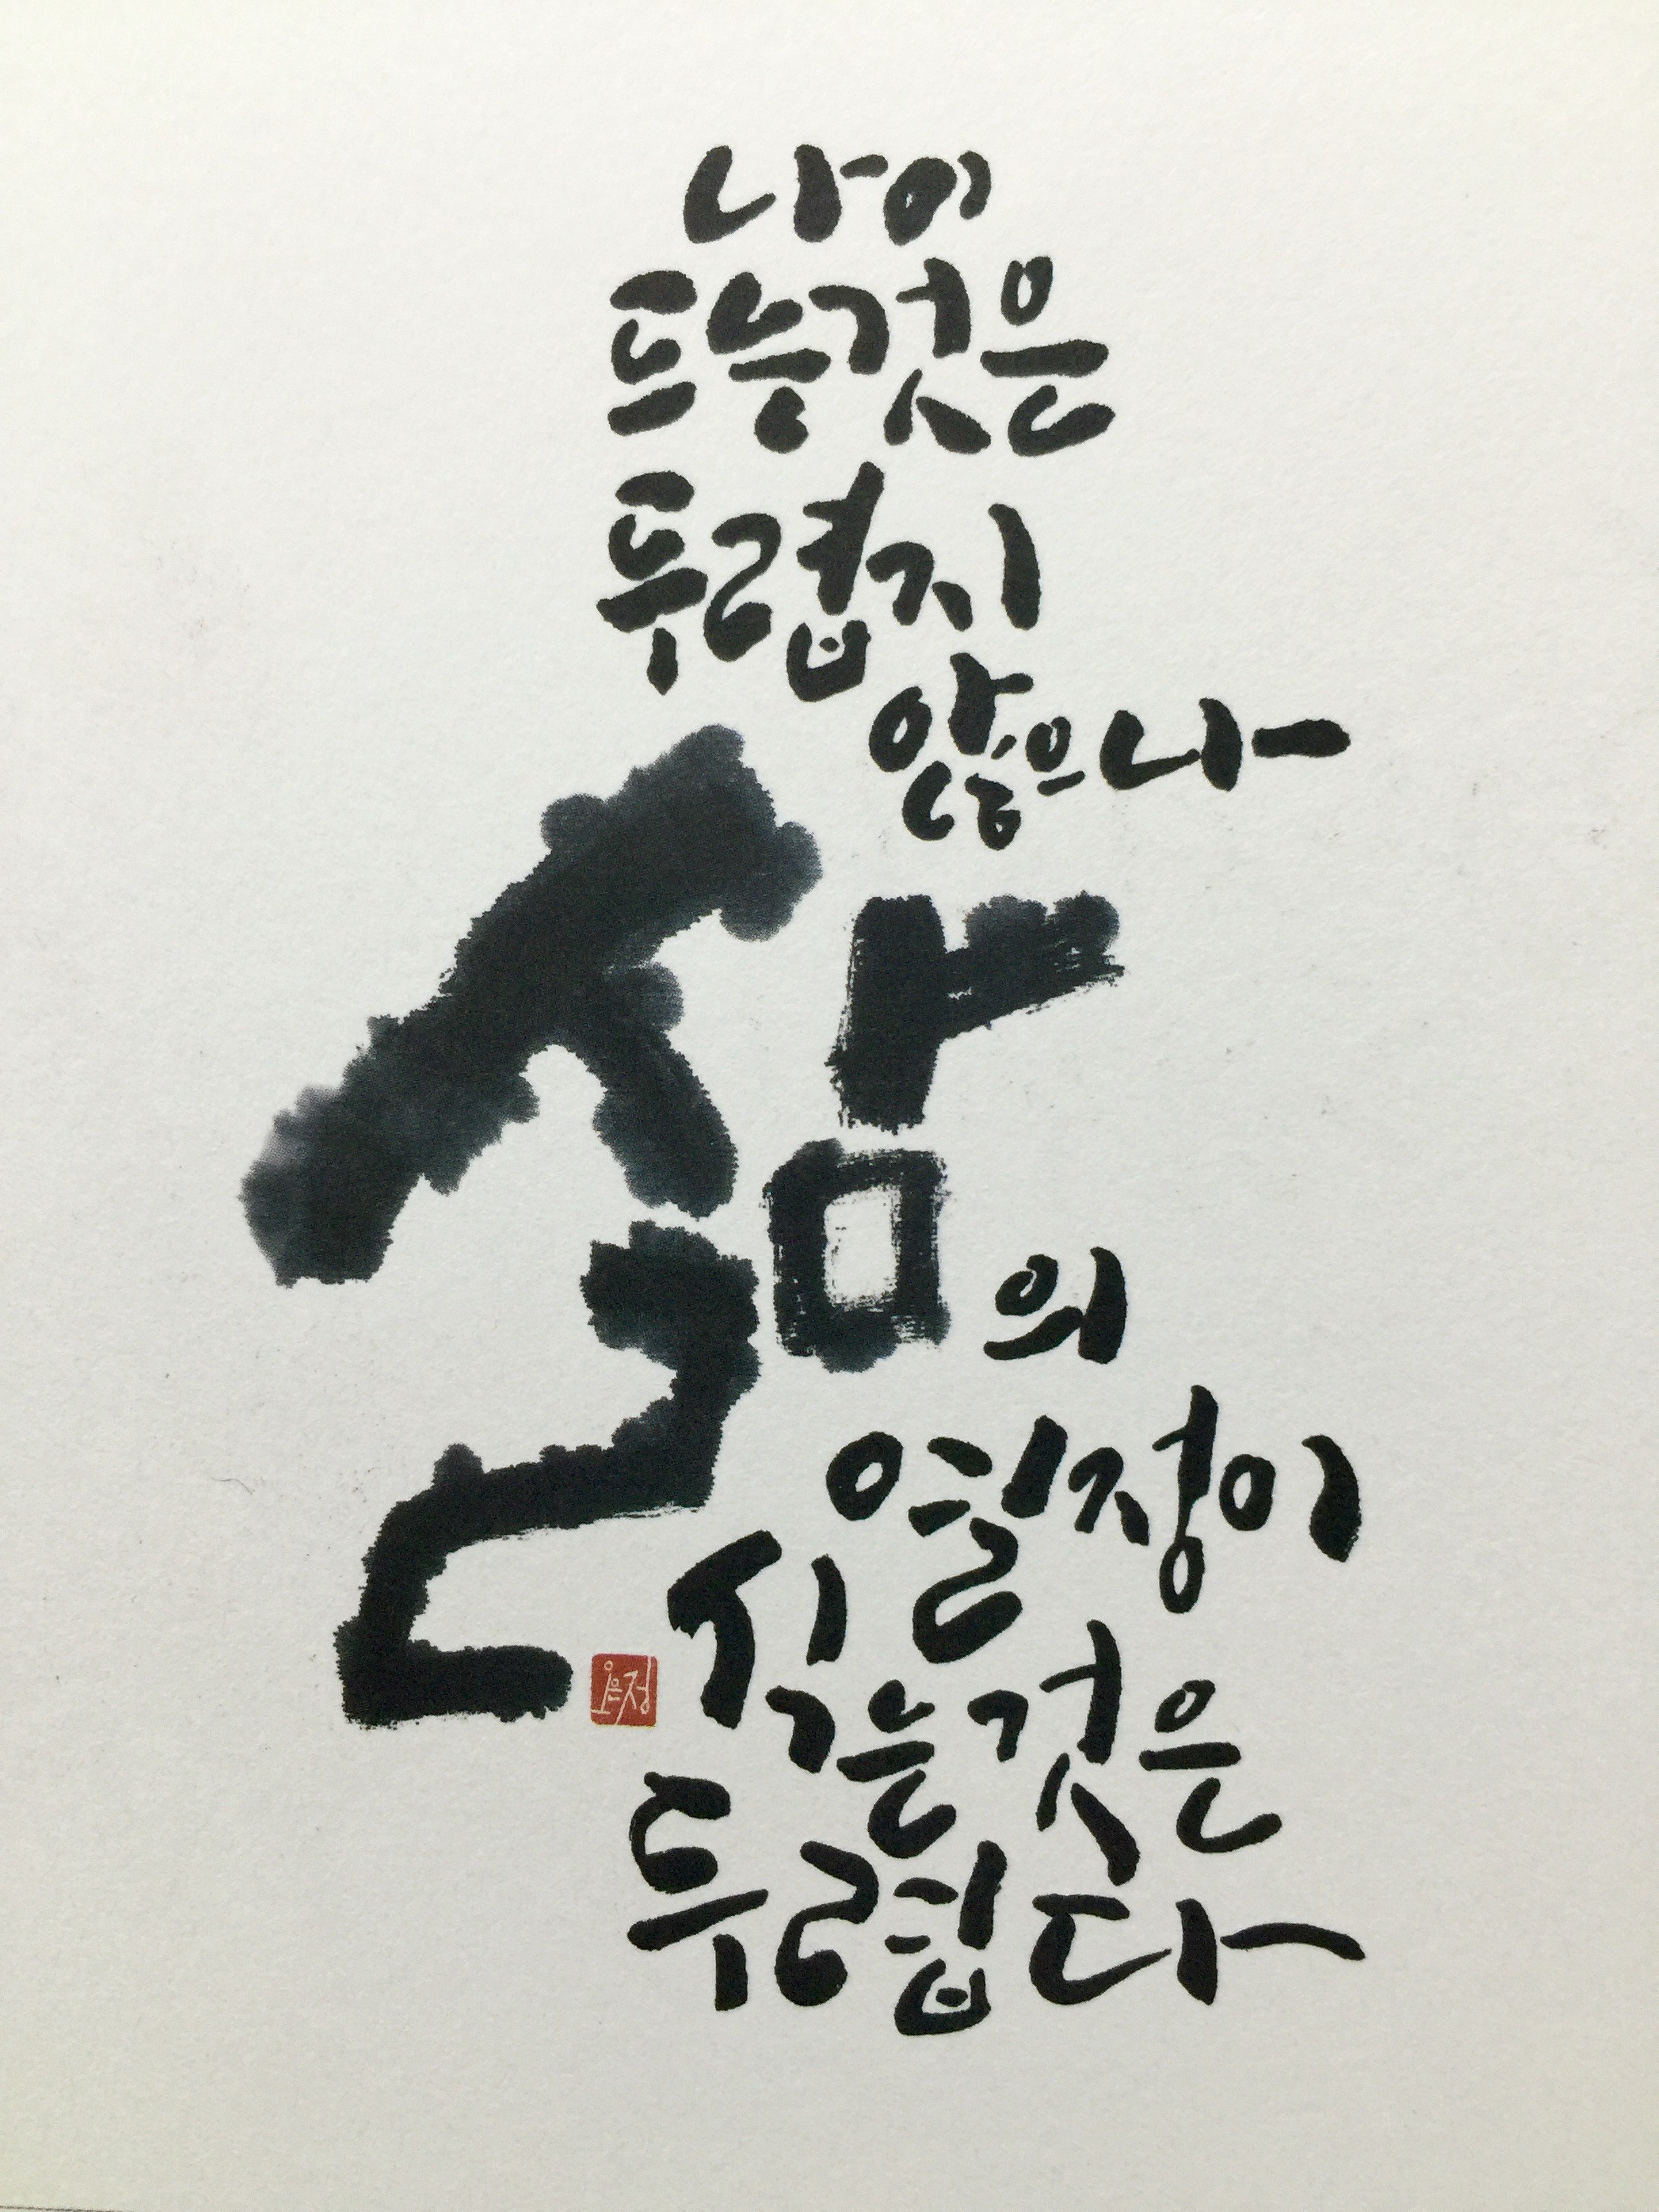 나이
드는것은
두렵지
않으나
삶의
열정이
식는것은
두렵다